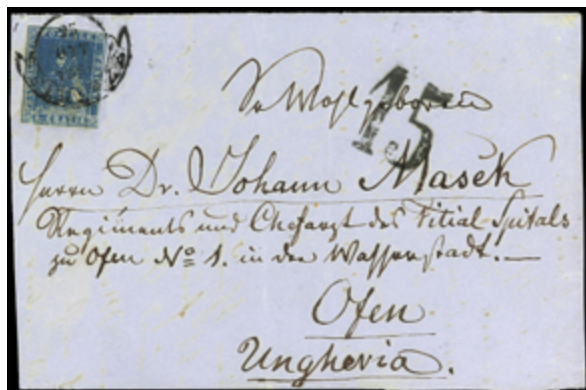 Sr Wohlgeboren
15
Herrn Dr. Johann Masek
Regiments und Chefarzt des Filial-Spitals
zu Ofen No 1. in der Wasserstadt.
Ofen
Ungheria.